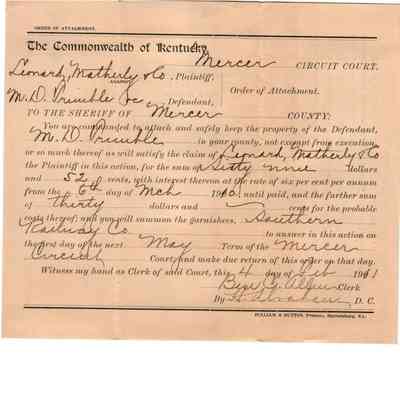 ORDER OF ATTACHMENT.
The Commonwealth of Kentucky,
Mercer CIRCUIT COURT.
Leonard, Matherly & Co, Plaintiff,
AGAINST Order of Attachment.
M. D. Trimble &c Defendant,
TO THE SHERIFF OF Mercer COUNTY:
You are commanded to attach and safely keep the property of the Defendant,
M. D. Trimble in your county, not exempt from execution,
or so much thereof as will satisfy the claim of Leonard, Matherly & Co
the Plaintiff in this action, for the sum of Sixty nine dollars
and 52 cents, with interest thereon at the rate of six per cent per annum
from the 6th day of Mch 1910 until paid, and the further sum
of thirty dollars and cents for the probable
costs thereof; and you will summon the garnishees, Southern
Railway Co. to answer in this action on
the first day of the next May Term of the Mercer
Circuit Court, and make due return of this order on that day.
Witness my hand as Clerk of said Court, this 4 day of Feb 1911
Ben C. Allin Clerk
By D. C.
PULLIAM & HUTTON, Printers, Harrodsburg, Ky.